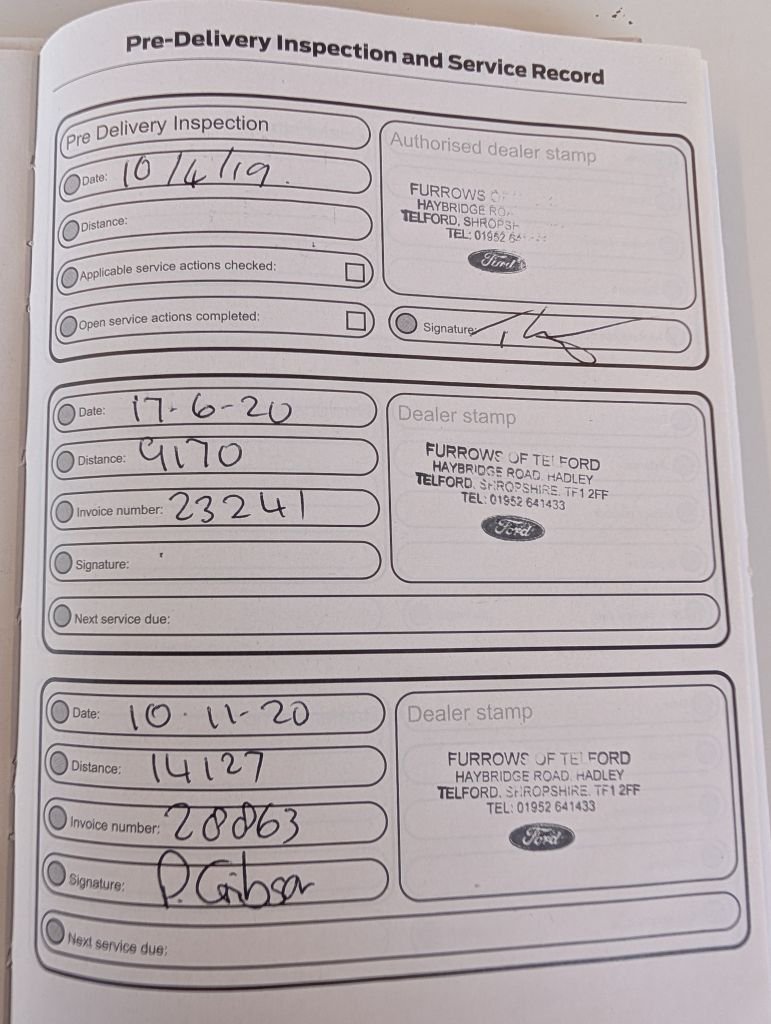 Pre-Delivery Inspection and Service Record
Pre Delivery Inspection
Date: 10/4/19.
Distance:
Applicable service actions checked:
Open service actions completed:
Authorised dealer stamp
FURROWS OF
HAYBRIDGE
TELFORD,
TEL: 01952
Ford
Signature:
Date: 17-6-20
Distance: 9170
Invoice number: 23241
Signature:
Next service due:
Dealer stamp
FURROWS OF TELFORD
HAYBRIDGE ROAD, HADLEY
TELFORD, SHROPSHIRE, TF1 2FF
TEL: 01952 641433
Ford
Date: 10-11-20
Distance: 14127
Invoice number: 28863
Signature: P. Gibson
Next service due:
Dealer stamp
FURROWS OF TELFORD
HAYBRIDGE ROAD, HADLEY
TELFORD, SHROPSHIRE, TF1 2FF
TEL: 01952 641433
Ford